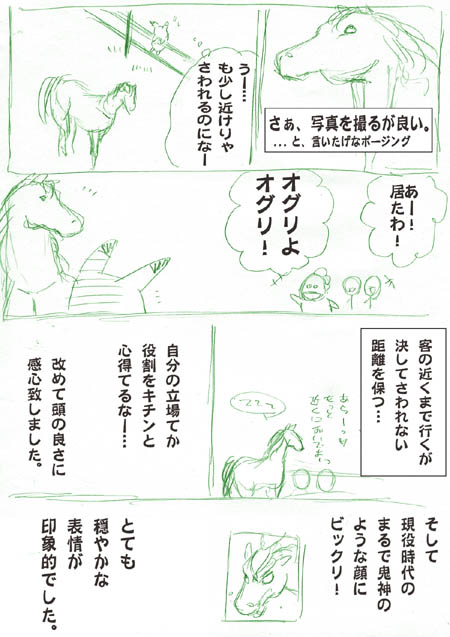 さぁ、写真を撮るが良い。
...と、言いたげなポージング
うー…
も少し近けりゃ
さわれるのになー
あー!
居たわ!
オグリよ
オグリ!
客の近くまで行くが
決してさわれない
距離を保つ…
あらーっ
もっと
近くに
自分の立場てか
役割をキチンと
心得てるなー…
改めて頭の良さに
感心致しました。
そして
現役時代の
まるで鬼神の
ような顔に
ビックリ!
とても
穏やかな
表情が
印象的でした。